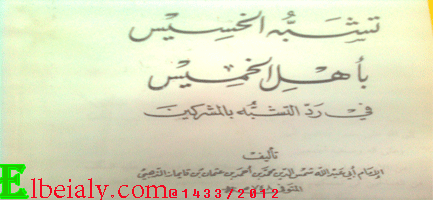 تشبّه الخسيس
بأهل الخميس
في رد التشبه بالمشركين
تأليف
الإمام أبي عبد الله شمس الدين محمد بن أحمد بن عثمان بن قايماز الذهبي
المتوفى
Elbeialy.com@1433/2012